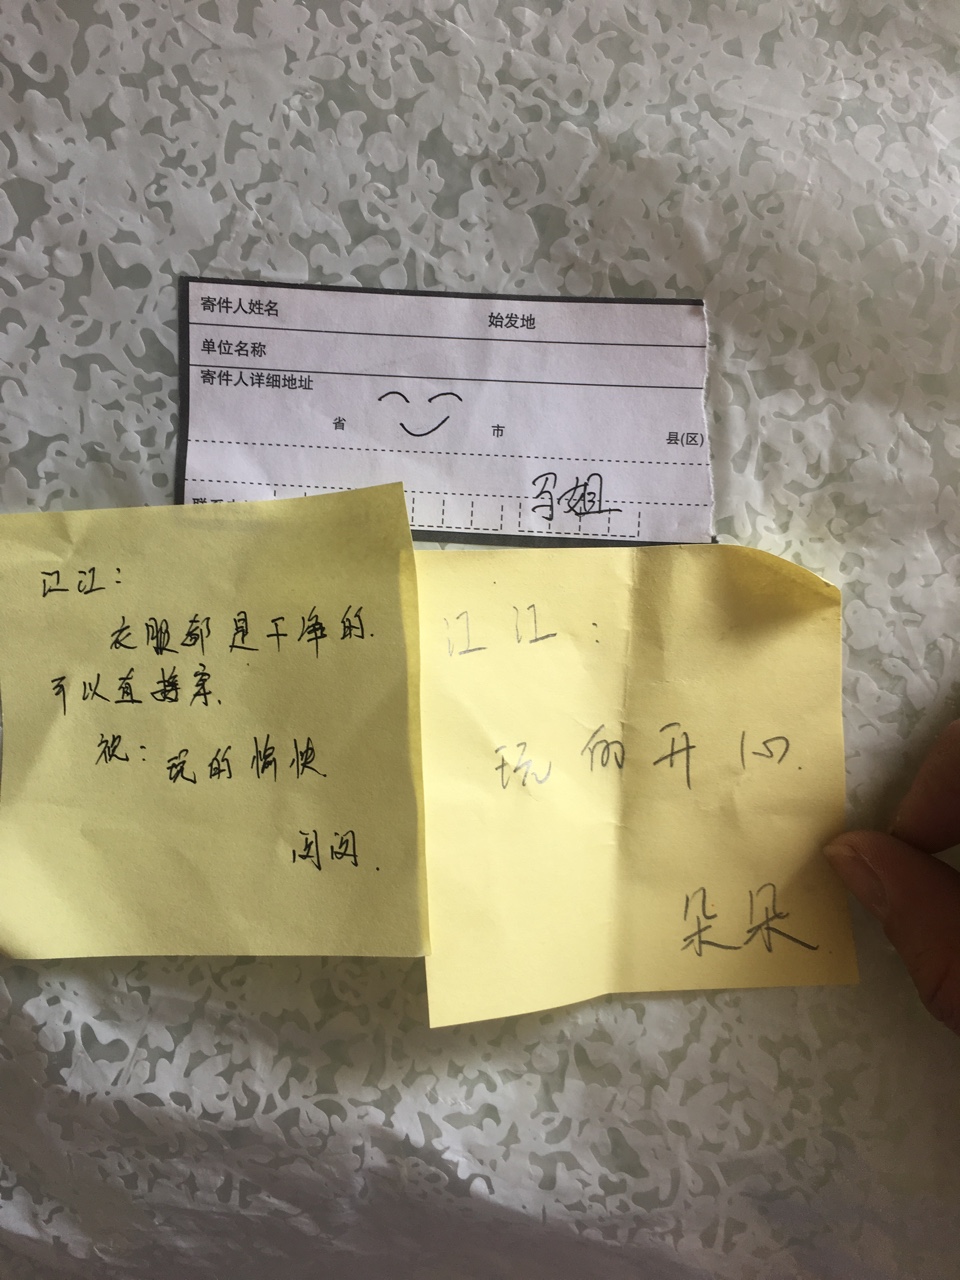 寄件人姓名 始发地
单位名称
寄件人详细地址
省 市 县(区)
马姐
江江：
衣服都是干净的.
可以直接穿.
祝：玩的愉快
闵闵.
江江：
玩的开心.
朵朵.